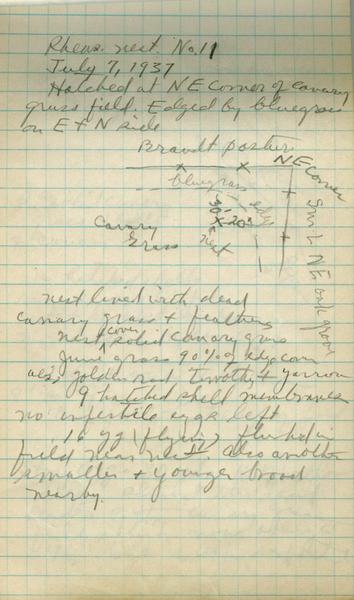 Pheas. nest. No. 11
July 7, 1937
Hatched at NE Corner of canary
grass field. Edged by bluegrass
on E + N side
Brandt pasture
NE Corner
bluegrass
edge
30'
20'
nest
Canary
Grass
NE oak grove
nest lined with dead
canary grass + feathers
nest cover solid canary grass
June grass 90% of edge cover
also golden rod Timothy + yarrow
9 hatched shell membranes
no infertile eggs left
16 yg (flying) flushed in
field near nest. Also another
smaller + younger brood
nearby.